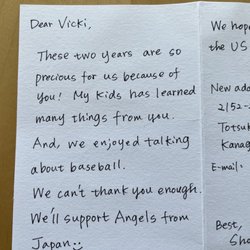 Dear Vicki,
These two years are so
precious for us because of
you! My kids has learned
many things from you.
And, we enjoyed talking
about baseball.
We can't thank you enough.
We'll support Angels from
Japan
We hope
the US
New add
2152-2
Totsuk
Kanag
E-mail:
Best,
Sho